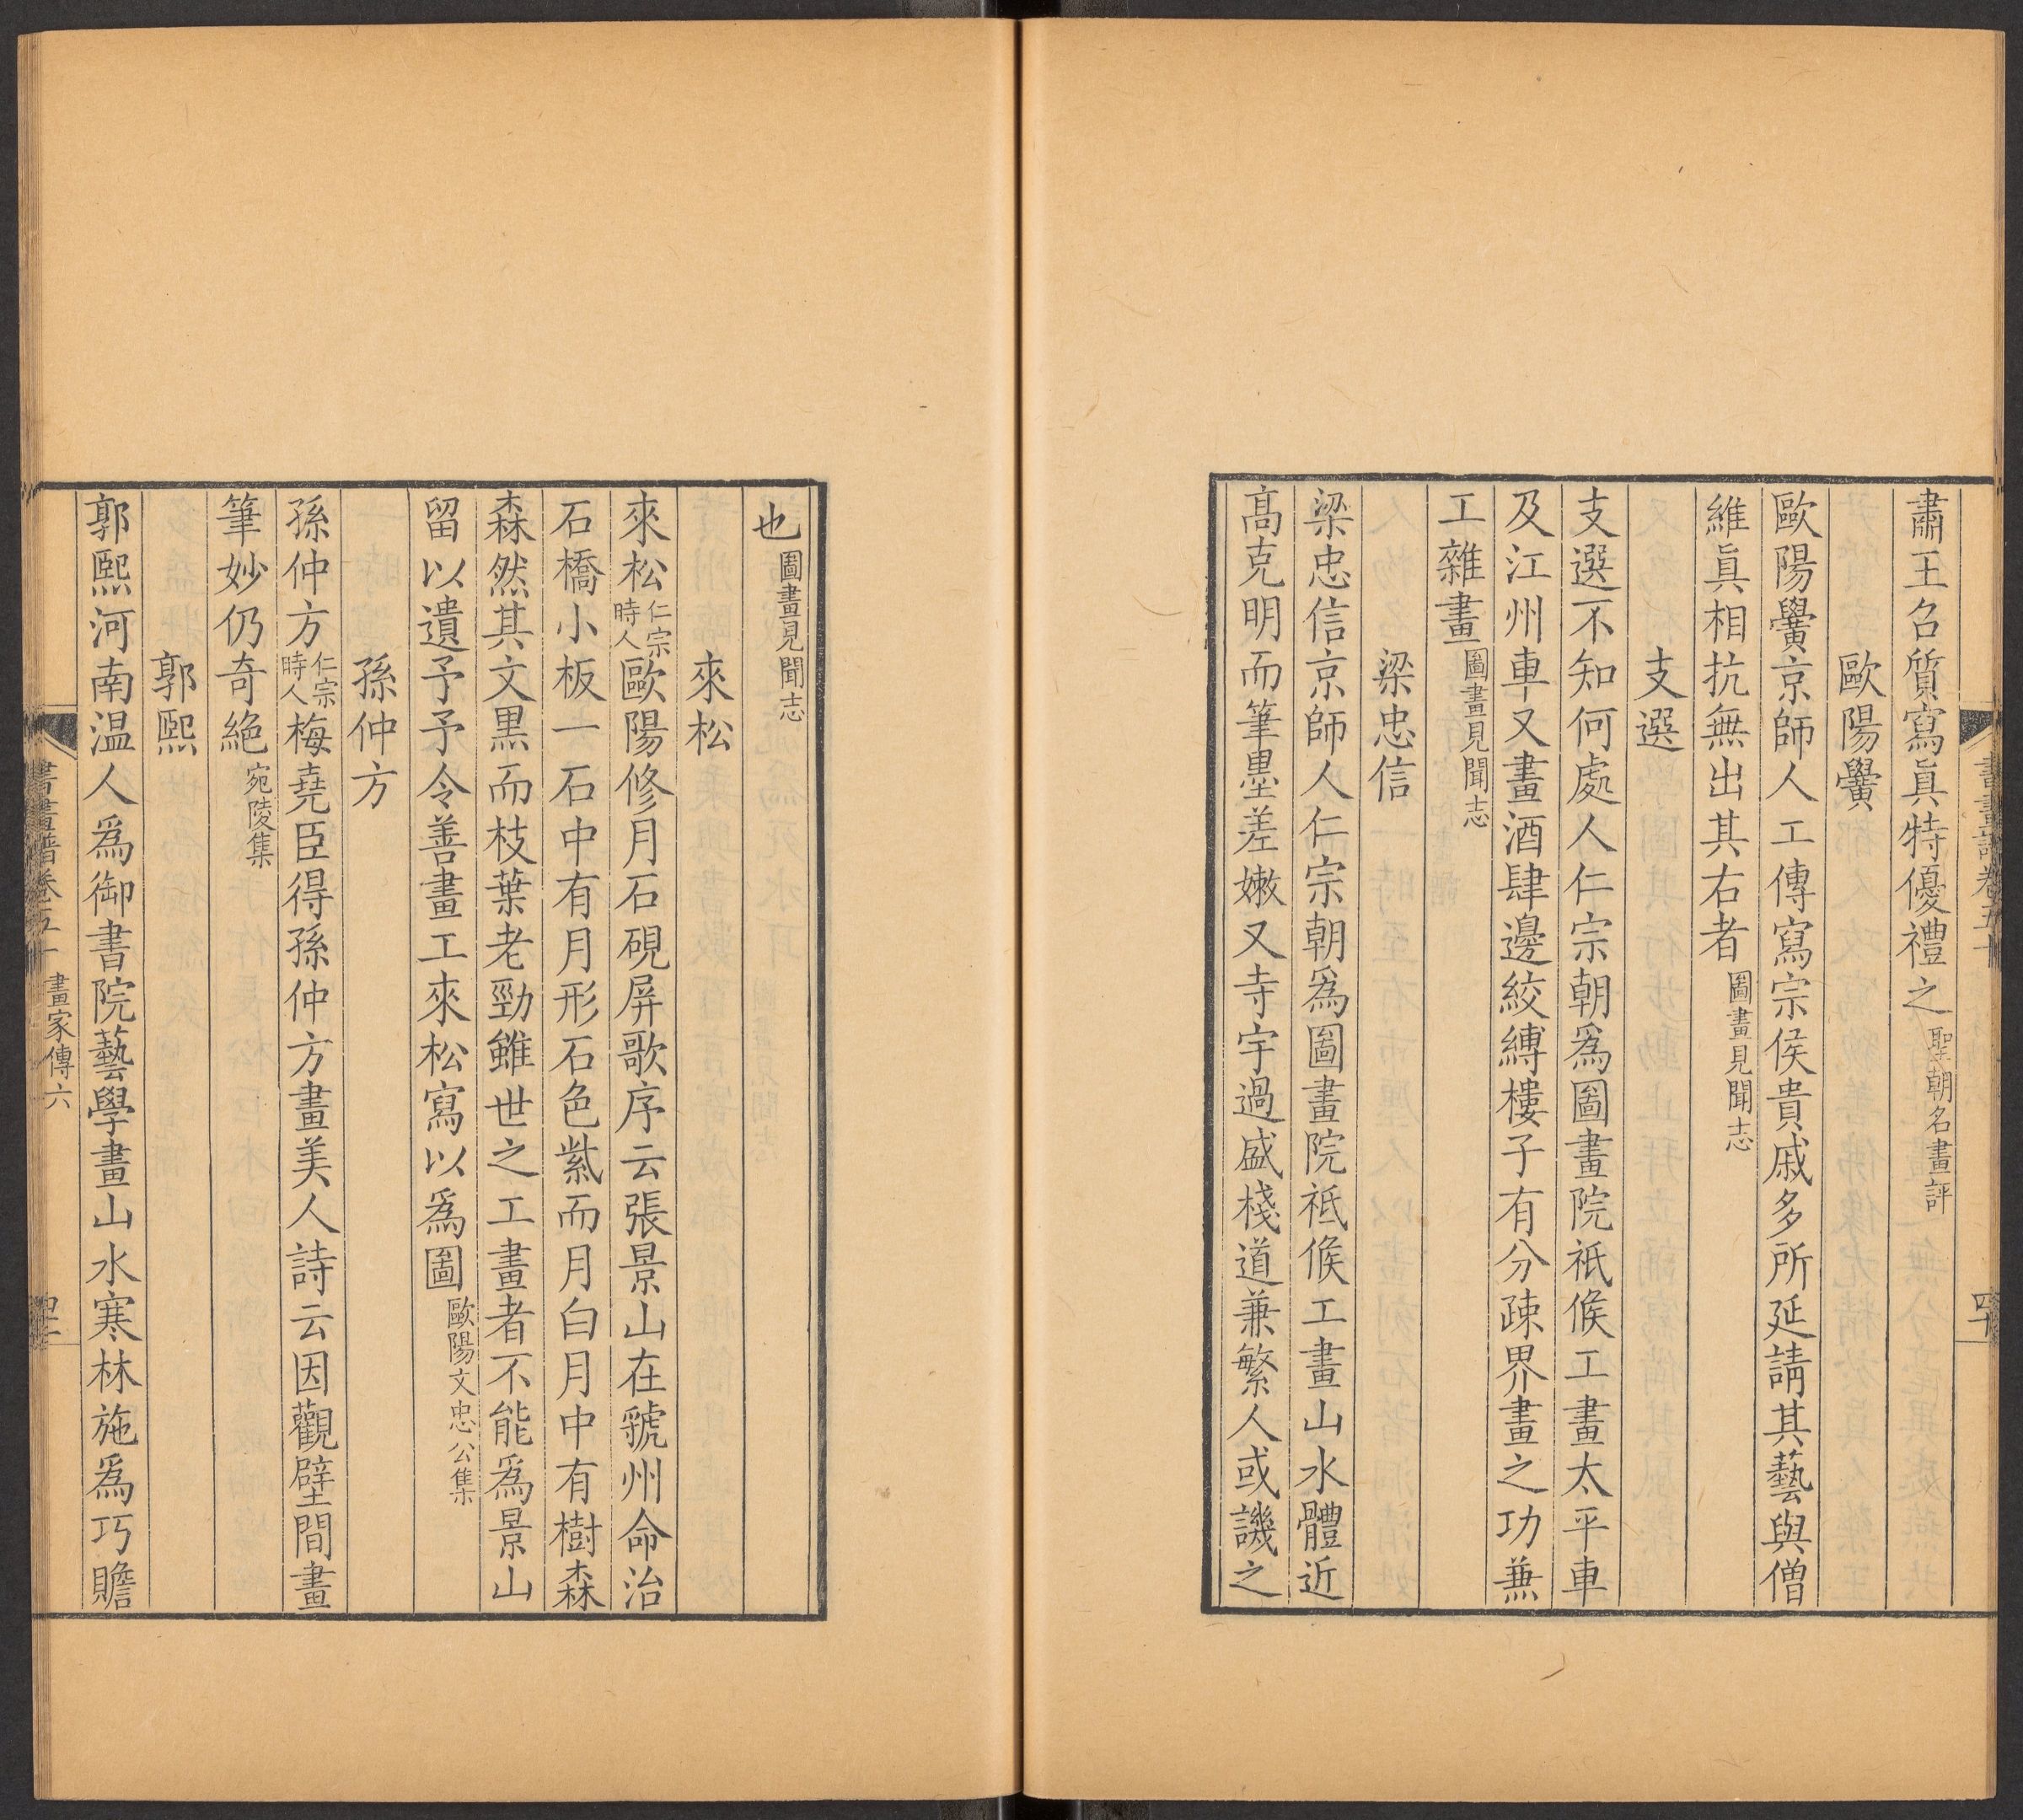 肅王召質寫眞特優禮之聖朝名畫評
歐陽黌
歐陽黌京師人工傳寫宗侯貴戚多所延請其藝與僧
維眞相抗無出其右者圖畫見聞志
支選
支選不知何處人仁宗朝爲圖畫院祇候工畫太平車
及江州車又畫酒肆邊絞縛樓子有分疎界畫之功兼
工雜畫圖畫見聞志
梁忠信
梁忠信京師人仁宗朝爲圖畫院祗候工畫山水體近
高克明而筆墨差嫩又寺宇過盛棧道兼繁人或譏之
也圖畫見聞志
來松
來松仁宗時人歐陽修月石硯屏歌序云張景山在虢州命治
石橋小板一石中有月形石色紫而月白月中有樹森
森然其文黑而枝葉老勁雖世之工畫者不能爲景山
留以遺予予令善畫工來松寫以爲圖歐陽文忠公集
孫仲方
孫仲方仁宗時人梅堯臣得孫仲方畫美人詩云因觀壁間畫
筆妙仍奇絕宛陵集
郭熙
郭熙河南温人爲御書院藝學畫山水寒林施爲巧贍
書畫譜卷五十 畫家傳六